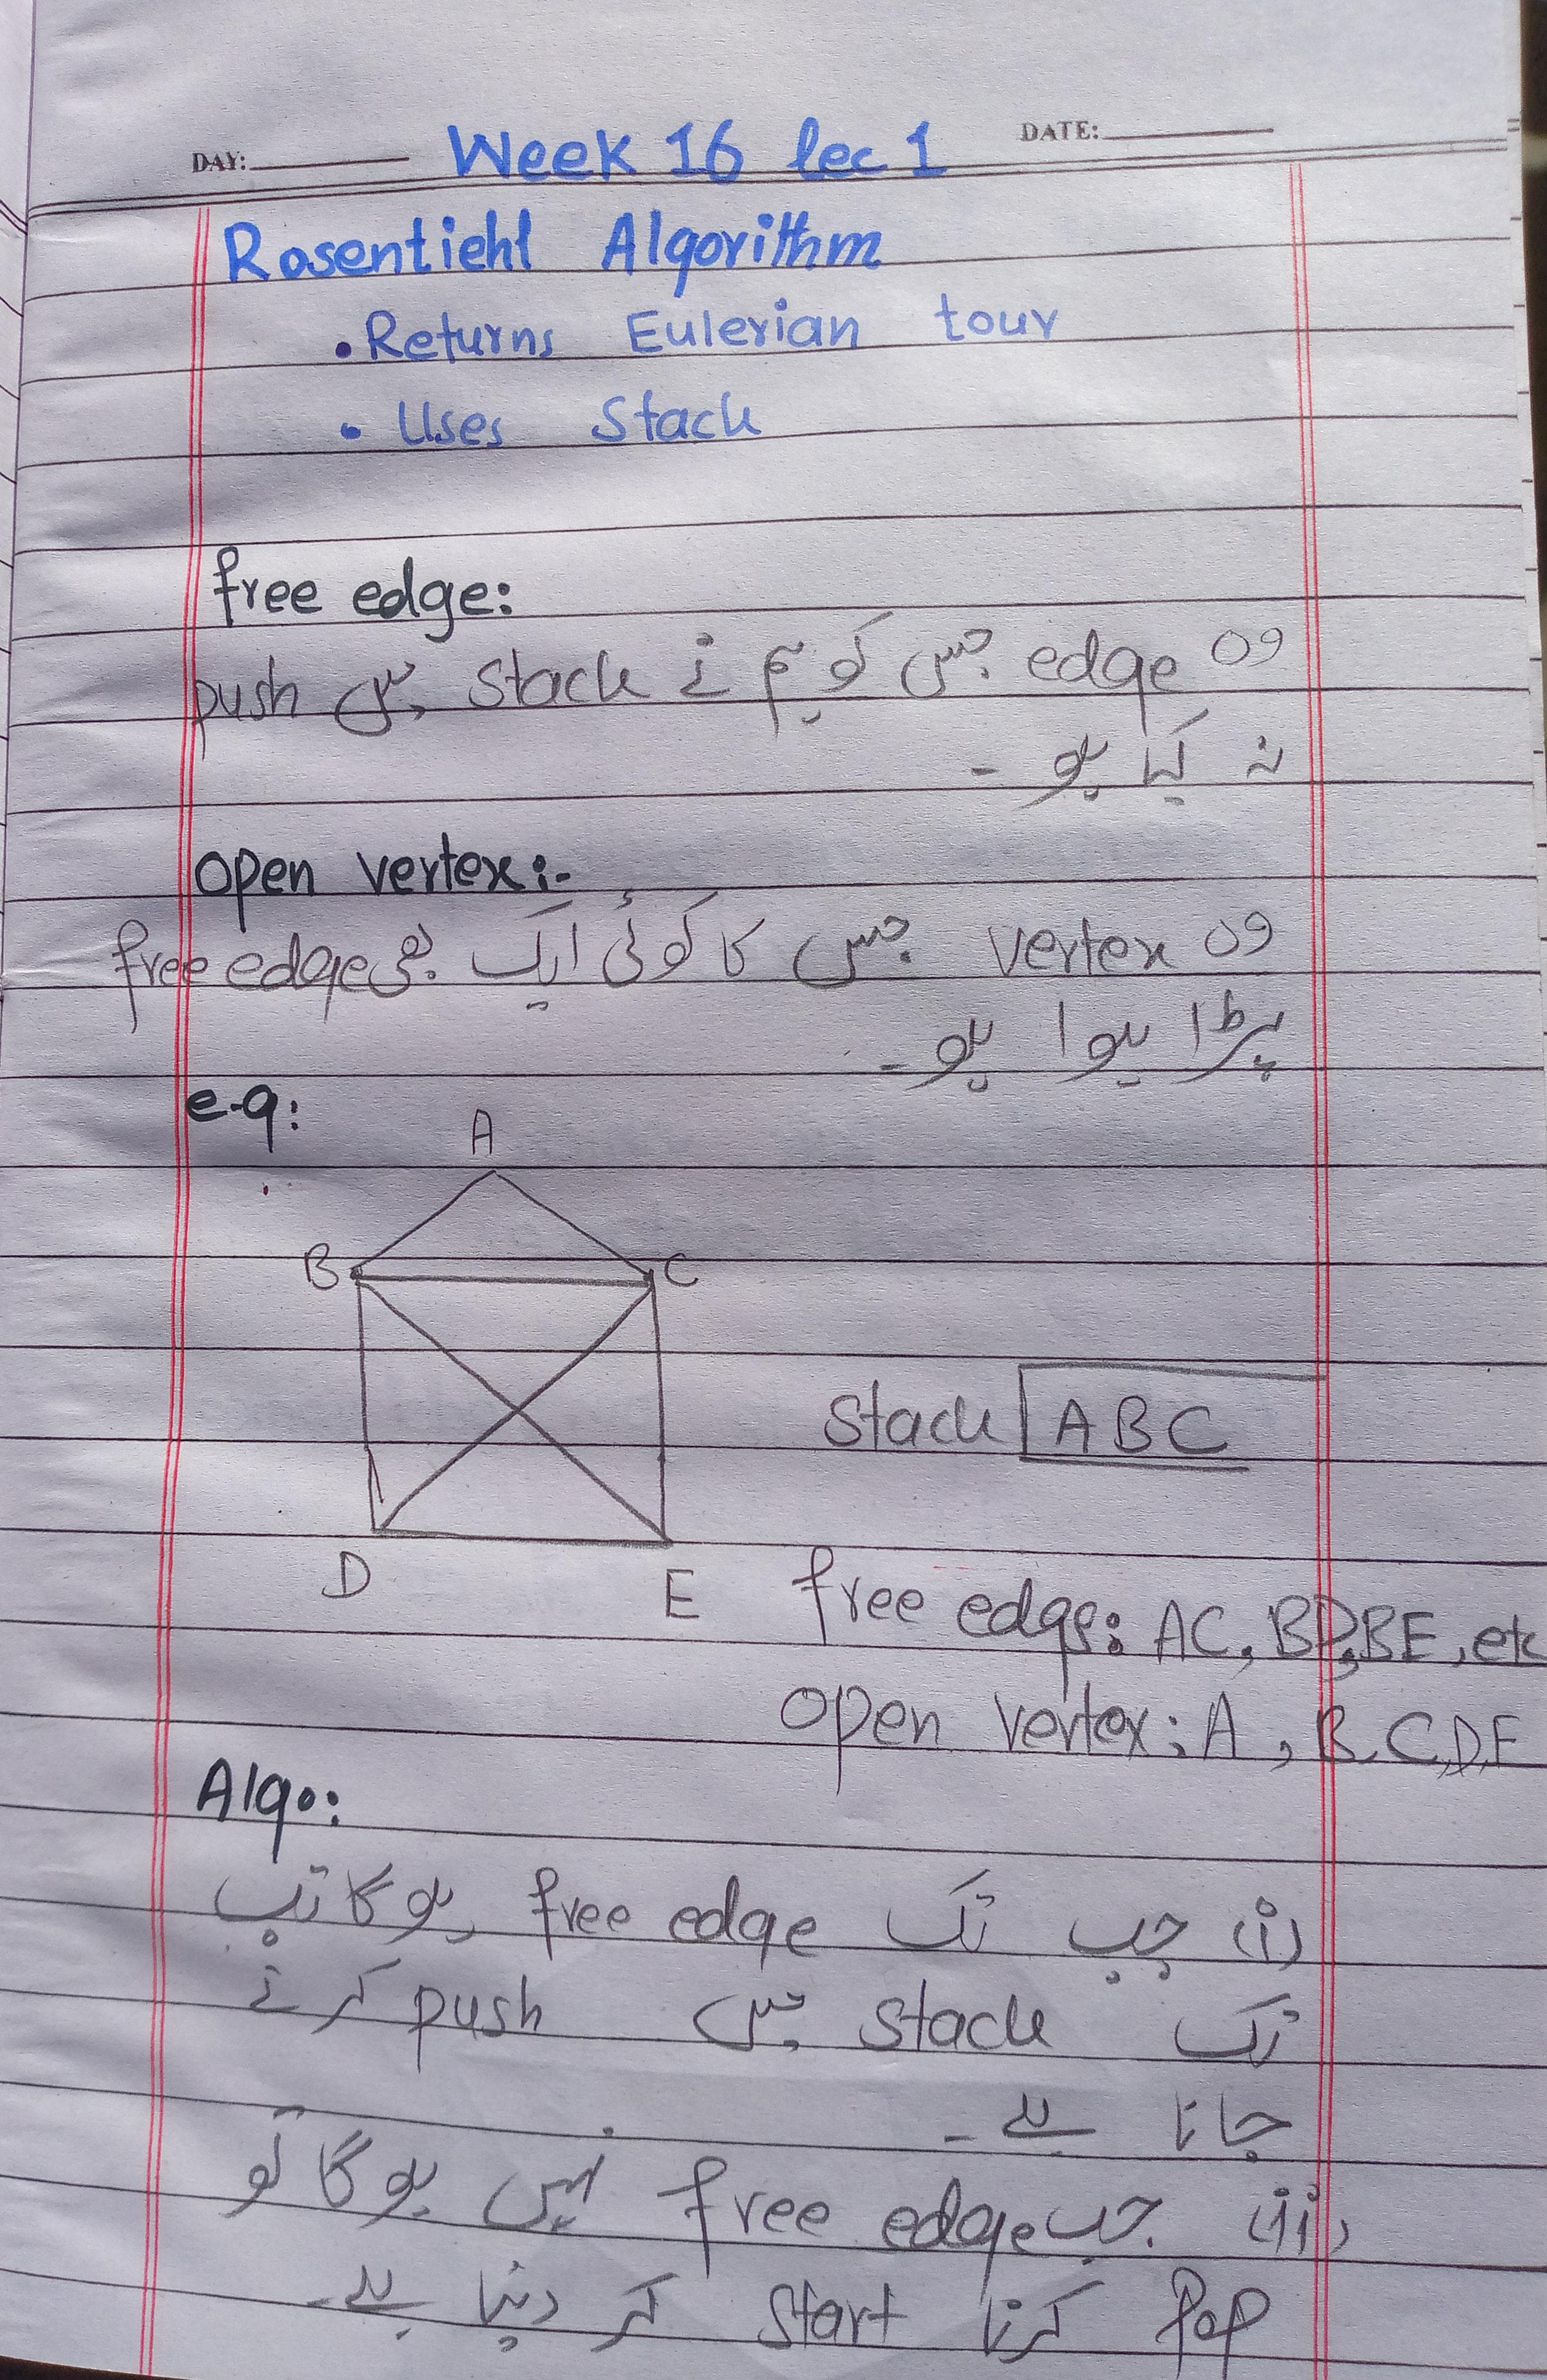 DAY: Week 16 lec 1 DATE:
Rosentiehl Algorithm
• Returns Eulerian tour
• Uses Stack
free edge:
وہ edge جس کو ہم نے Stack میں push
نہ کیا ہو ۔
open vertex:-
وہ vertex جس کا کوئی ایک بھی free edge
پڑا ہوا ہو۔
e.g:
A
B C
Stack ABC
D E
free edge: AC, BD, BE, etc
open vertex: A, B, C, D, E
Algo:
(i) جب تک free edge ہوگا تب
تک stack میں push کرتے
جانا ہے ۔
(ii) جب free edge نہیں ہوگا تو
pop کرنا start کر دینا ہے۔